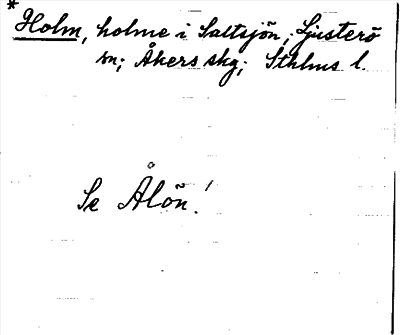 *Holm, holme i Saltsjön, Ljusterö
sn; Åkers skg; Sthlms l.
Se Ålön!